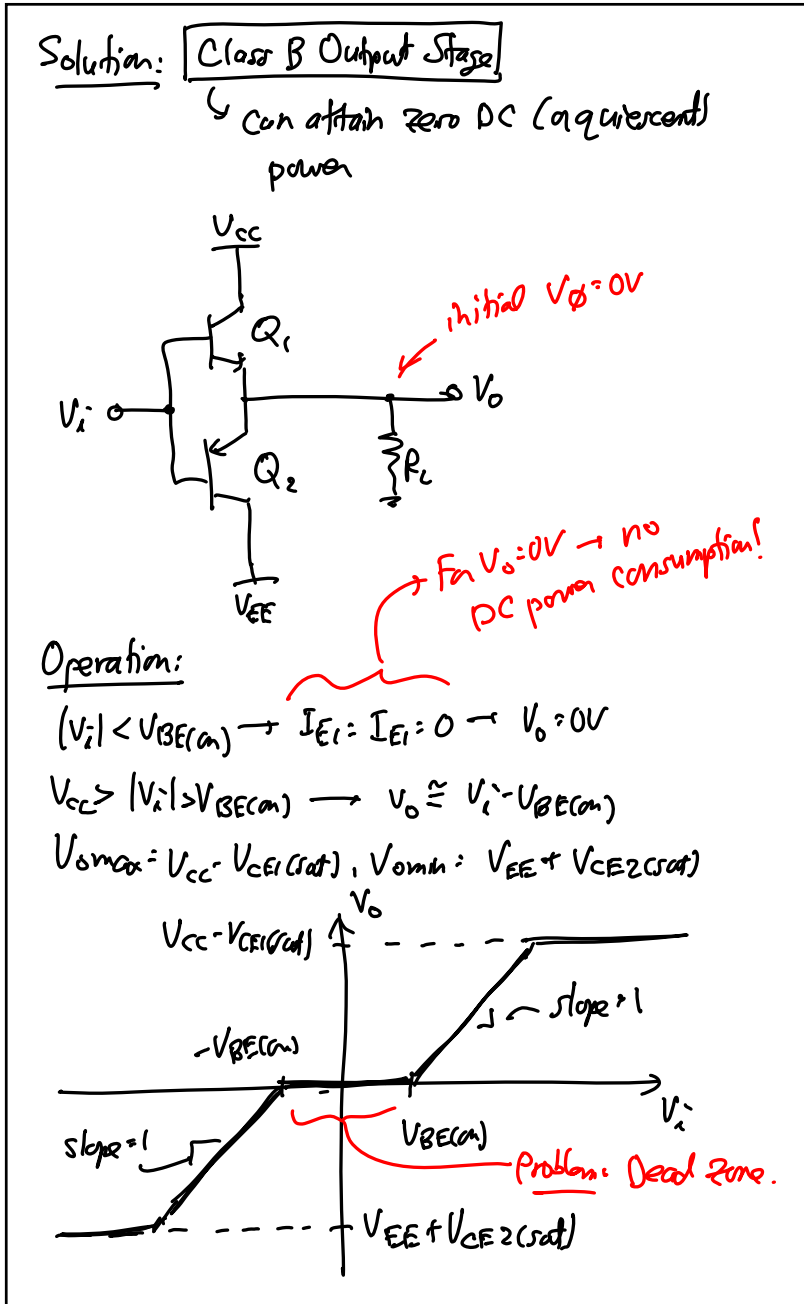 Solution: Class B Output Stage
↳ can attain zero DC (a quiescent)
power
Vcc
Q1
initial Vø = 0V
Vi
Vo
Q2
RL
For Vo = 0V → no
DC power consumption!
VEE
Operation:
|Vi| < VBE(on) → IE1 = IE1 = 0 → Vo = 0V
Vcc > |Vi| > VBE(on) → vo ≅ Vi - VBE(on)
Vomax = Vcc - VCE1(sat), Vomin = VEE + VCE2(sat)
Vo
Vcc - VCE1(sat)
slope = 1
-VBE(on)
Vi
slope = 1
VBE(on)
Problem: Dead Zone.
VEE + VCE2(sat)